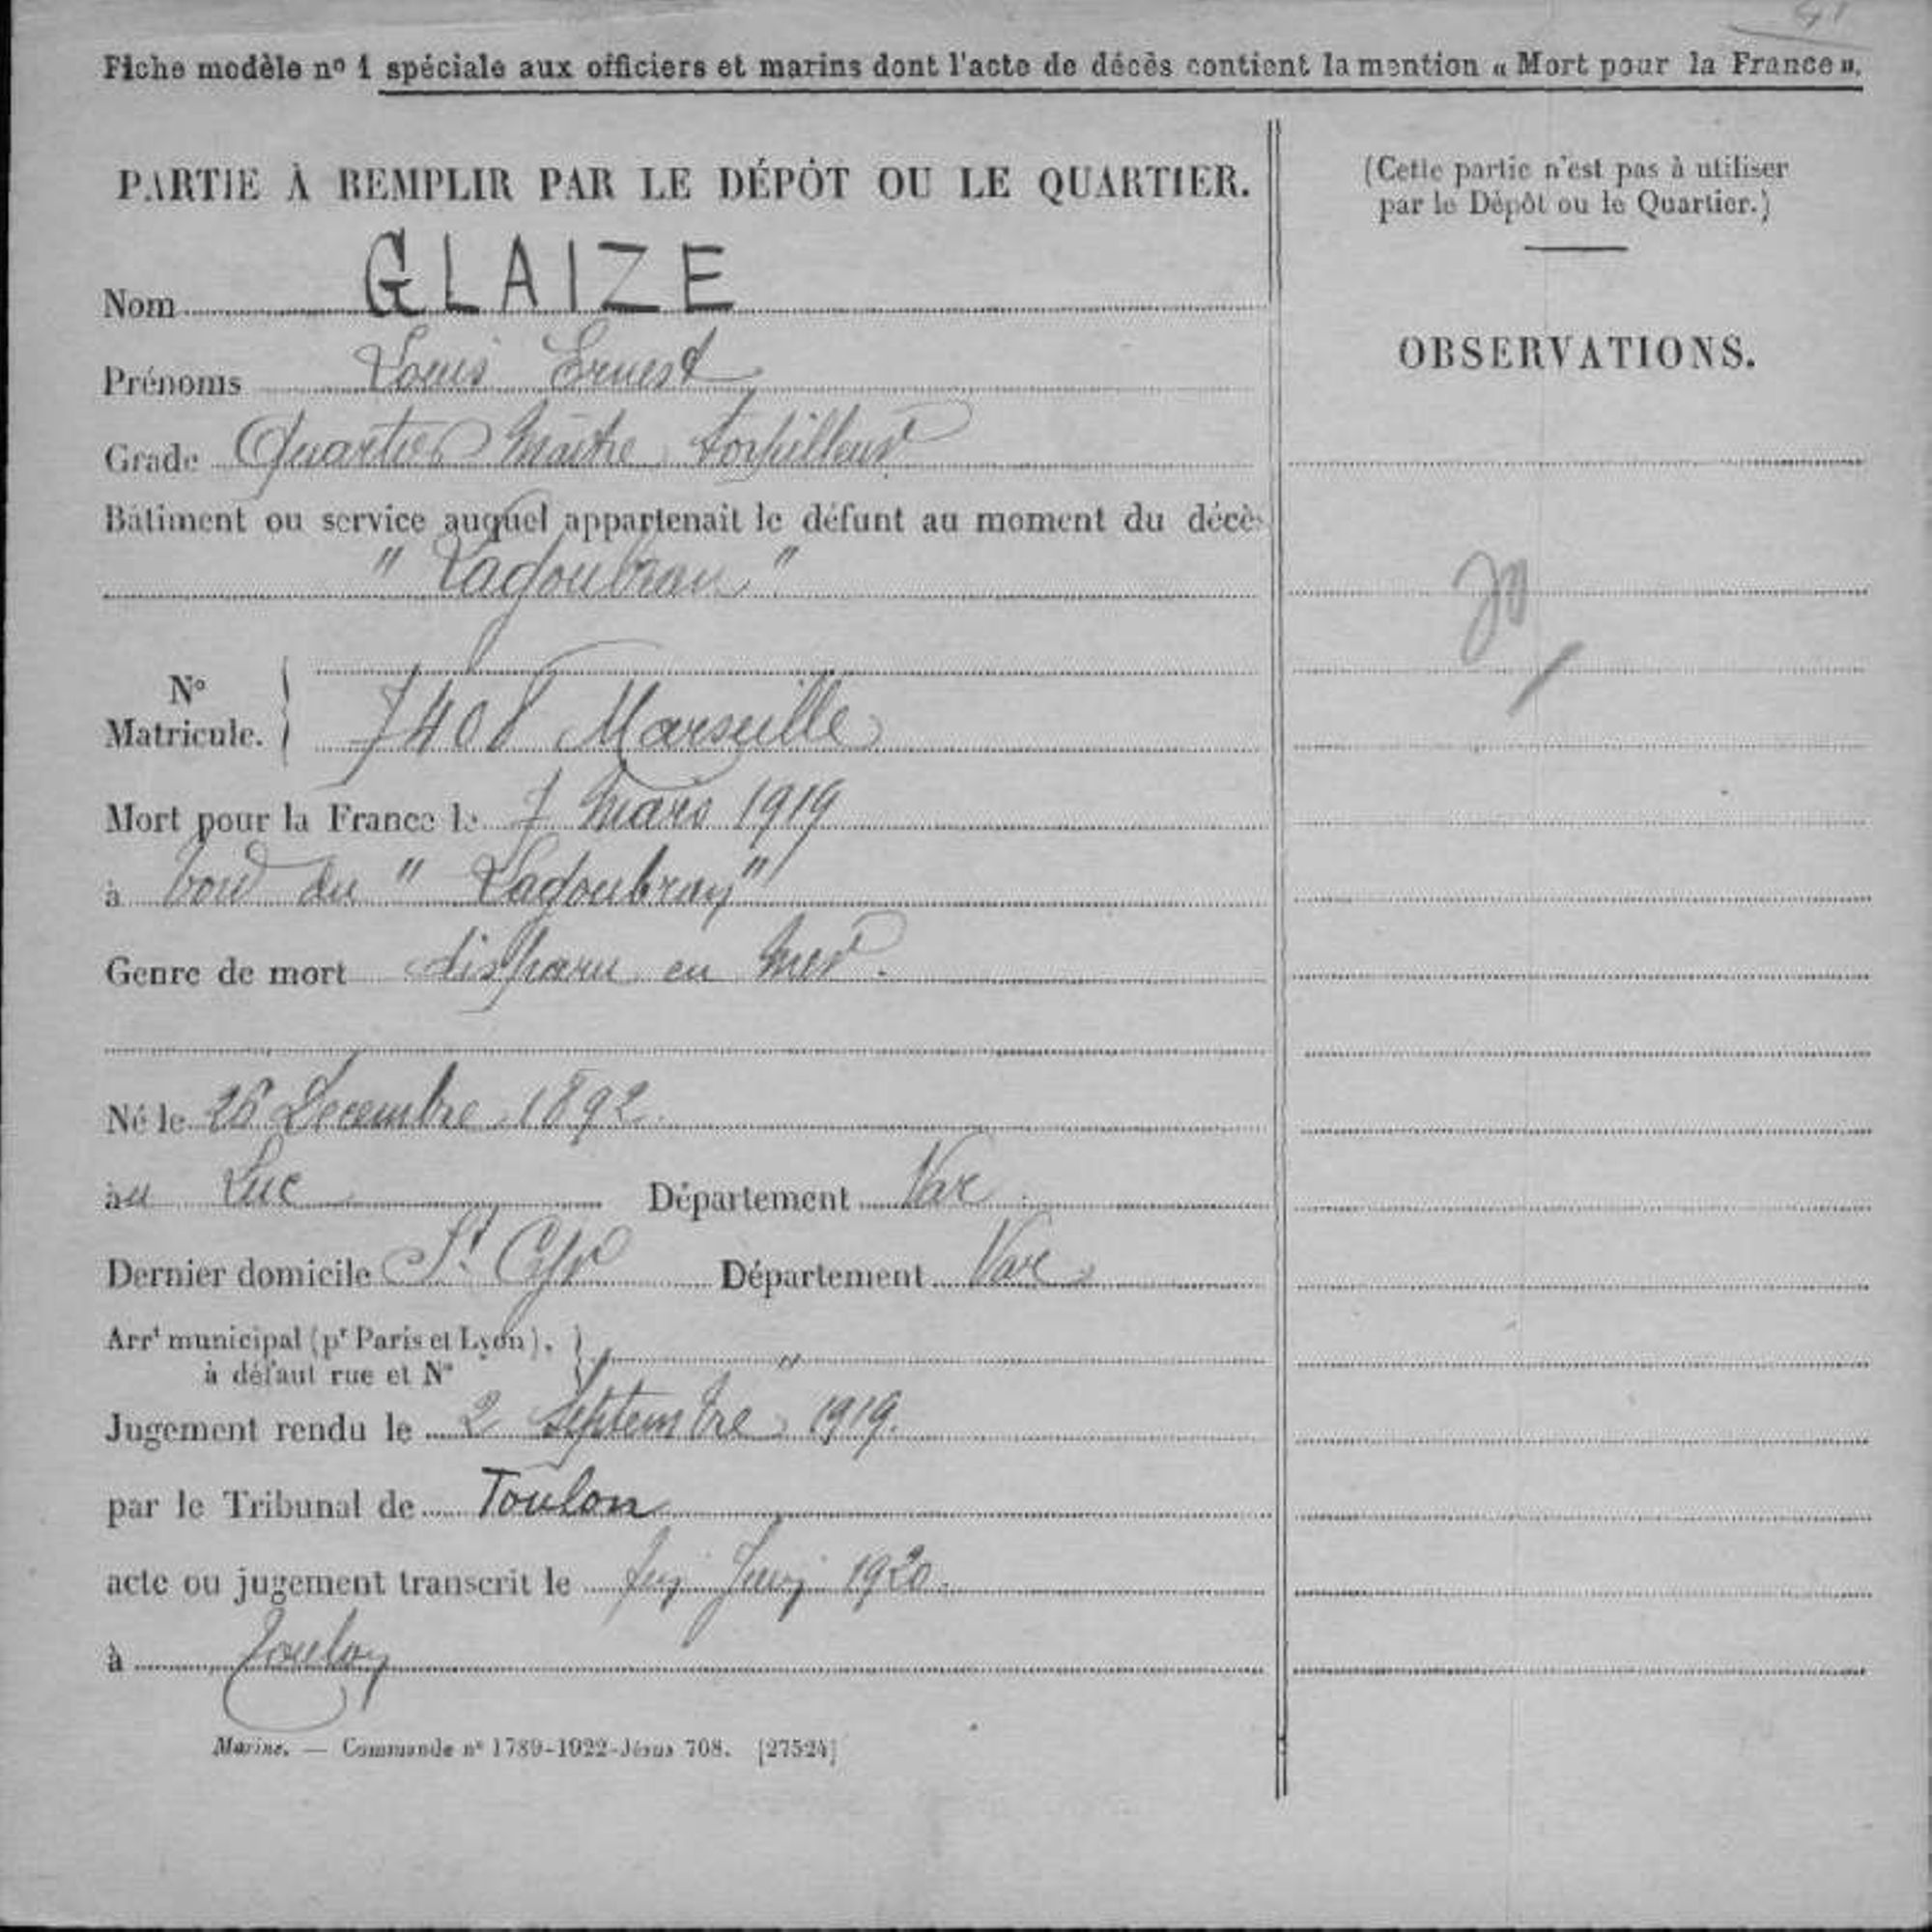 41
Fiche modèle nº 1 spéciale aux officiers et marins dont l'acte de décès contient la mention « Mort pour la France ».
PARTIE À REMPLIR PAR LE DÉPÔT OU LE QUARTIER.
Nom GLAIZE
Prénoms Louis Ernest
Grade Quartier Maître torpilleur
Bâtiment ou service auquel appartenait le défunt au moment du décès
" Lagoubran "
Nº Matricule. 7408 Marseille
Mort pour la France le 7 Mars 1919
à bord du " Lagoubran "
Genre de mort disparu en mer.
Né le 26 Decembre 1892
au Luc Département Var
Dernier domicile St. Cyr Département Var
Arrt municipal (pr Paris et Lyon),
à défaut rue et Nº "
Jugement rendu le 2 Septembre 1919.
par le Tribunal de Toulon
acte ou jugement transcrit le Juin 1920.
à Toulon
Marine. — Commande nº 1789-1922-Jésus 708. [27524]
(Cette partie n'est pas à utiliser
par le Dépôt ou le Quartier.)
OBSERVATIONS.